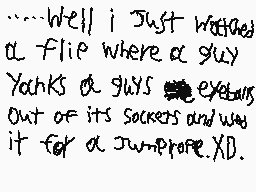 .....Well i Just Watched
a flip where a guy
Yanks a guys eyeballs
out of its sockets and uses
it for a Jumprope. XD.